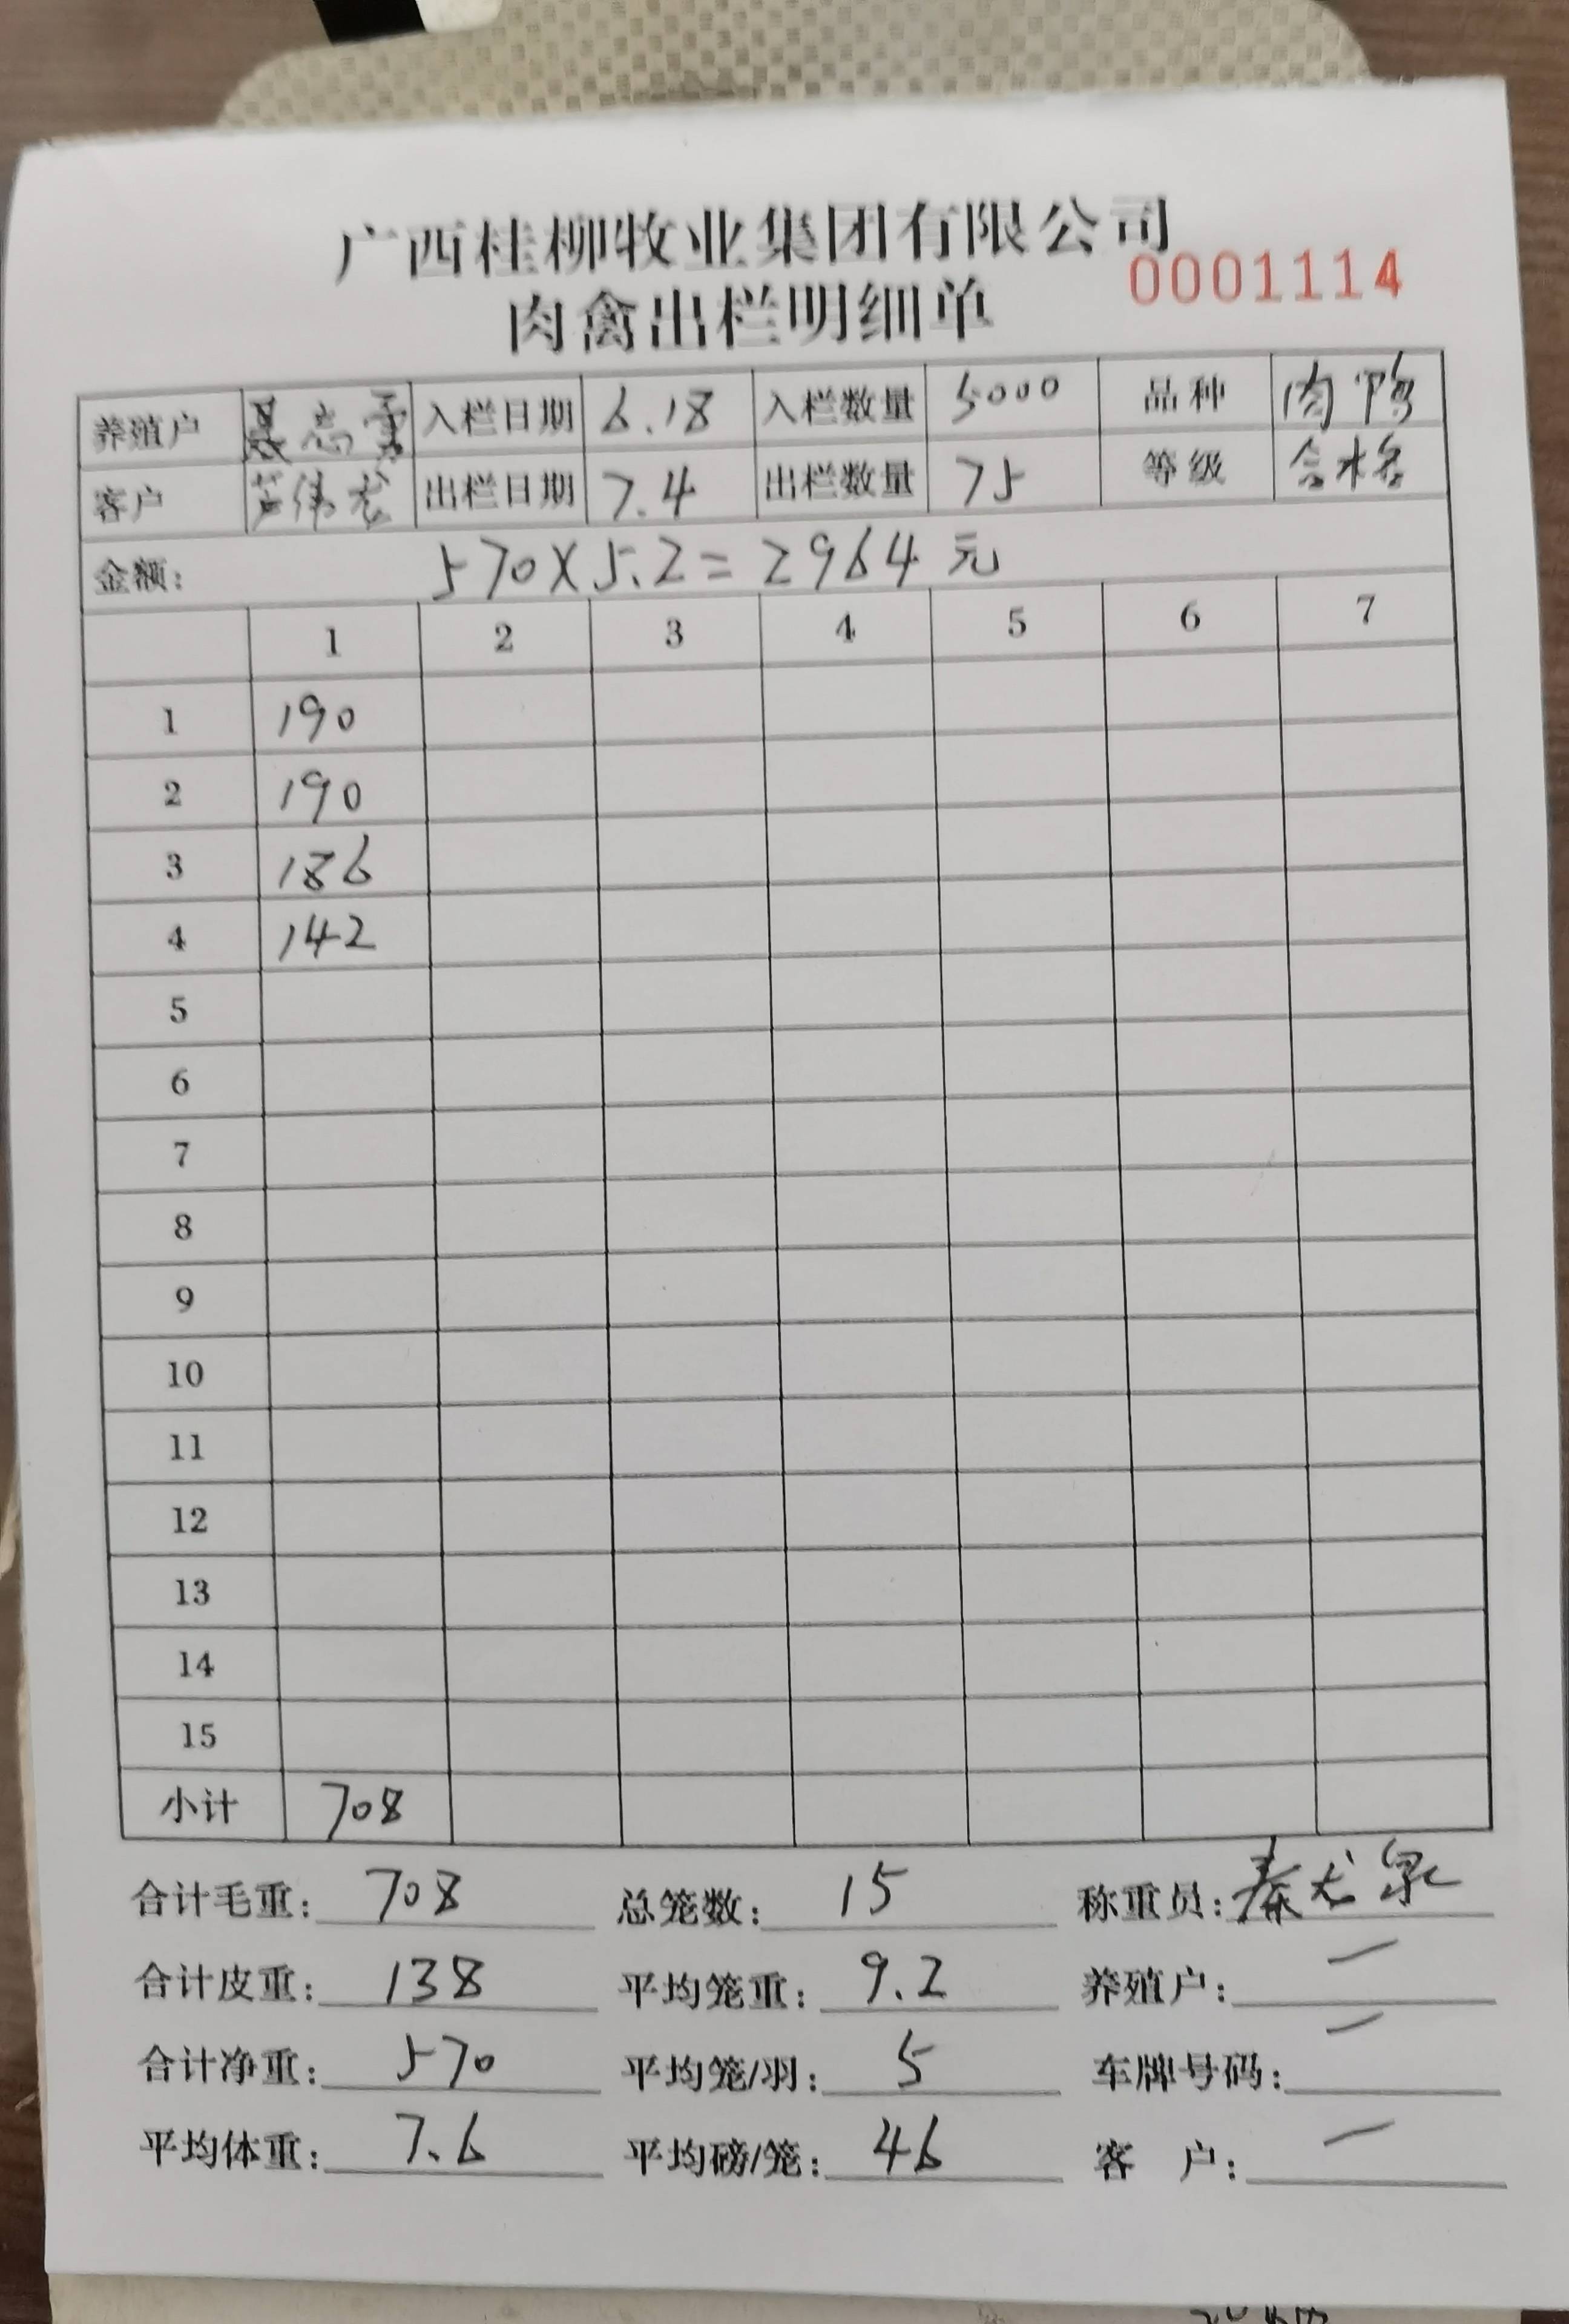 广西桂柳牧业集团有限公司
0001114
肉禽出栏明细单
养殖户 志 入栏日期 6.18 入栏数量 5000 品种 肉鸭
客户 伟龙 出栏日期 7.4 出栏数量 75 等级 合格
金额: 570X5.2=2964元
1 2 3 4 5 6 7
1 190
2 190
3 186
4 142
5
6
7
8
9
10
11
12
13
14
15
小计 708
合计毛重: 708 总笼数: 15 称重员:
合计皮重: 138 平均笼重: 9.2 养殖户: 一
合计净重: 570 平均笼/羽: 5 车牌号码: 一
平均体重: 7.6 平均磅/笼: 46 客 户: 一